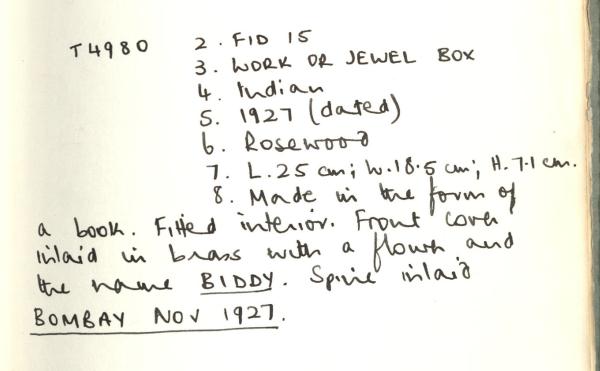 T4980 2. FID 15
3. WORK OR JEWEL BOX
4. Indian
5. 1927 (dated)
6. Rosewood
7. L.25 cm; W.18.5 cm; H.7.1 cm.
8. Made in the form of
a book. Fitted interior. Front cover
inlaid in brass with a flower and
the name BIDDY. Spine inlaid
BOMBAY NOV 1927.